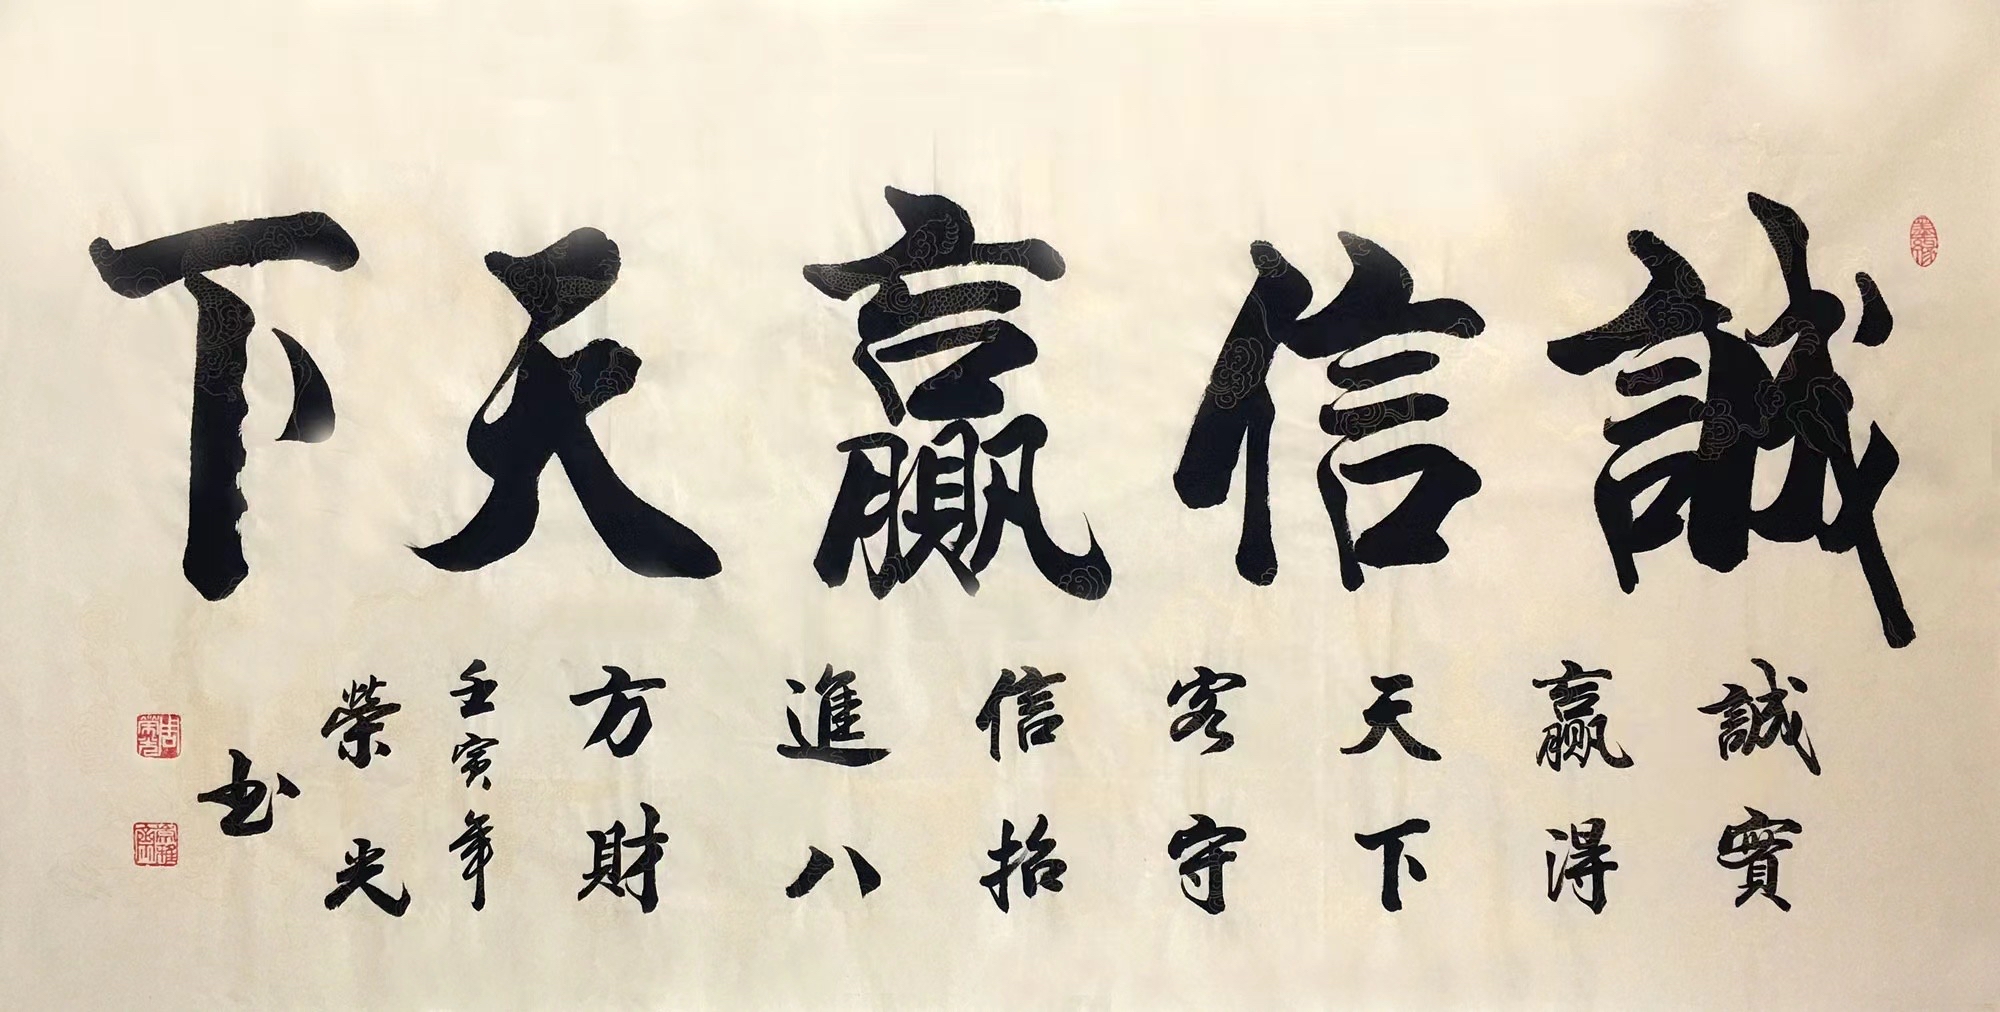 誠信贏天下
誠實
贏得
天下
客守
信招
進八
方財
壬寅年
榮光
书
周榮光